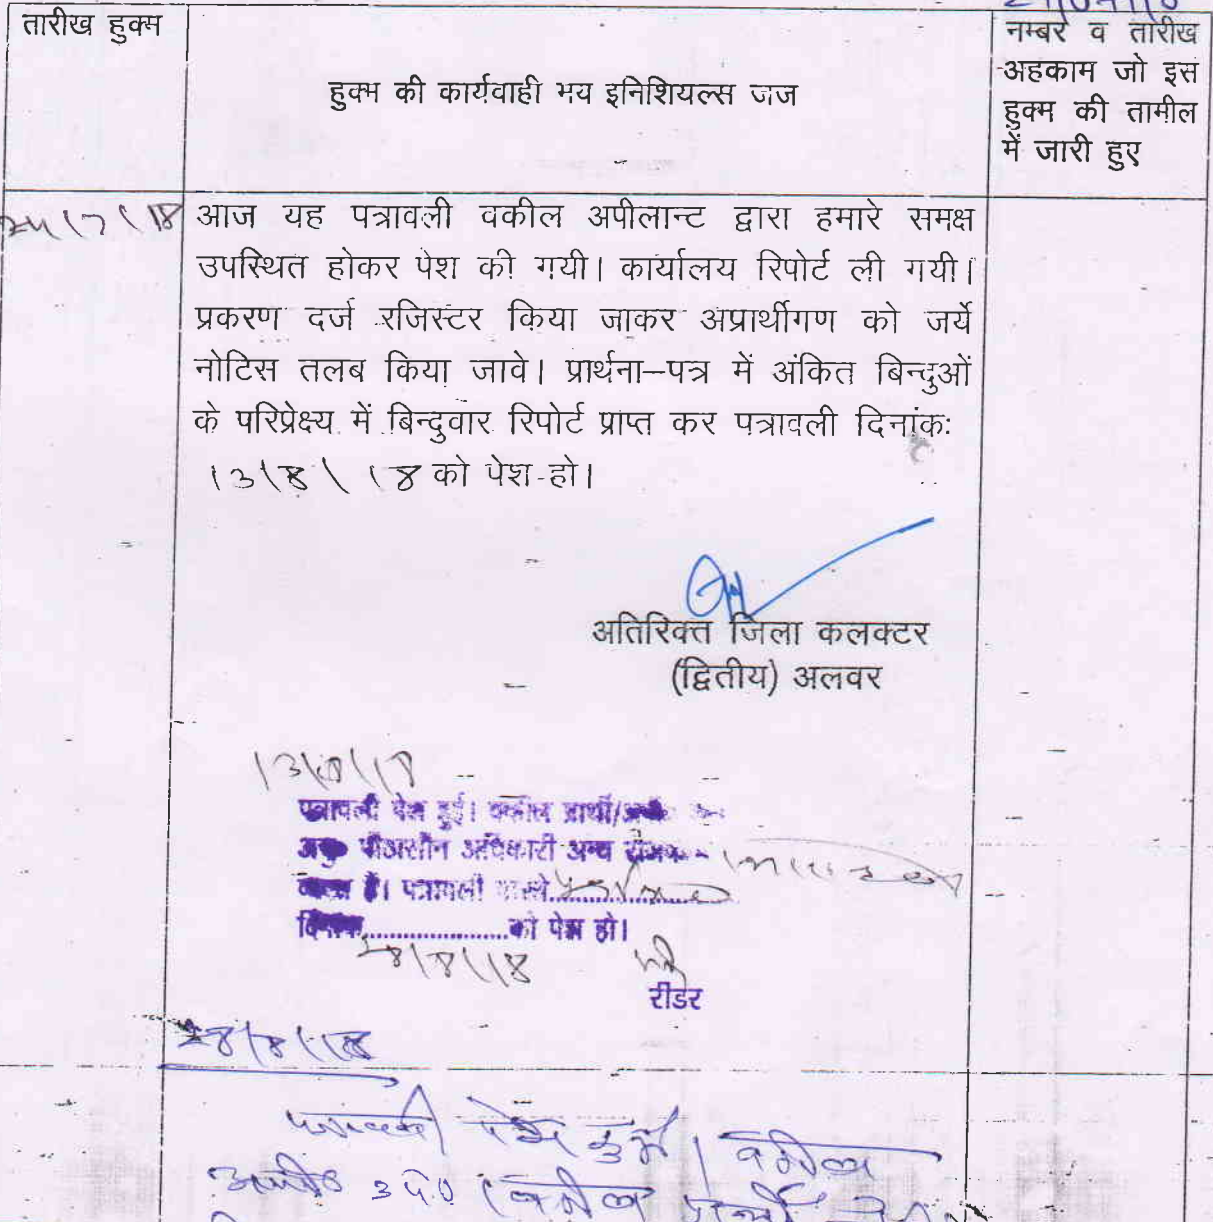 तारीख हुक्म
हुक्म की कार्यवाही भय इनिशियल्स जज
नम्बर व तारीख
अहकाम जो इस
हुक्म की तामील
में जारी हुए
24/7/18
आज यह पत्रावली वकील अपीलान्ट द्वारा हमारे समक्ष
उपस्थित होकर पेश की गयी। कार्यालय रिपोर्ट ली गयी।
प्रकरण दर्ज रजिस्टर किया जाकर अप्रार्थीगण को जर्ये
नोटिस तलब किया जावे। प्रार्थना–पत्र में अंकित बिन्दुओं
के परिप्रेक्ष्य में बिन्दुवार रिपोर्ट प्राप्त कर पत्रावली दिनांकः
13/8/18 को पेश हो।
अतिरिक्त जिला कलक्टर
(द्वितीय) अलवर
13/8/18
पत्रावली पेश हुई। वकील प्रार्थी/
पीठासीन अधिकारी अन्य
है। पत्रावली वास्ते
दिनांक....................को पेश हो।
28/8/18
रीडर
28/8/18
पत्रावली पेश हुई। वकील
उप० वकील